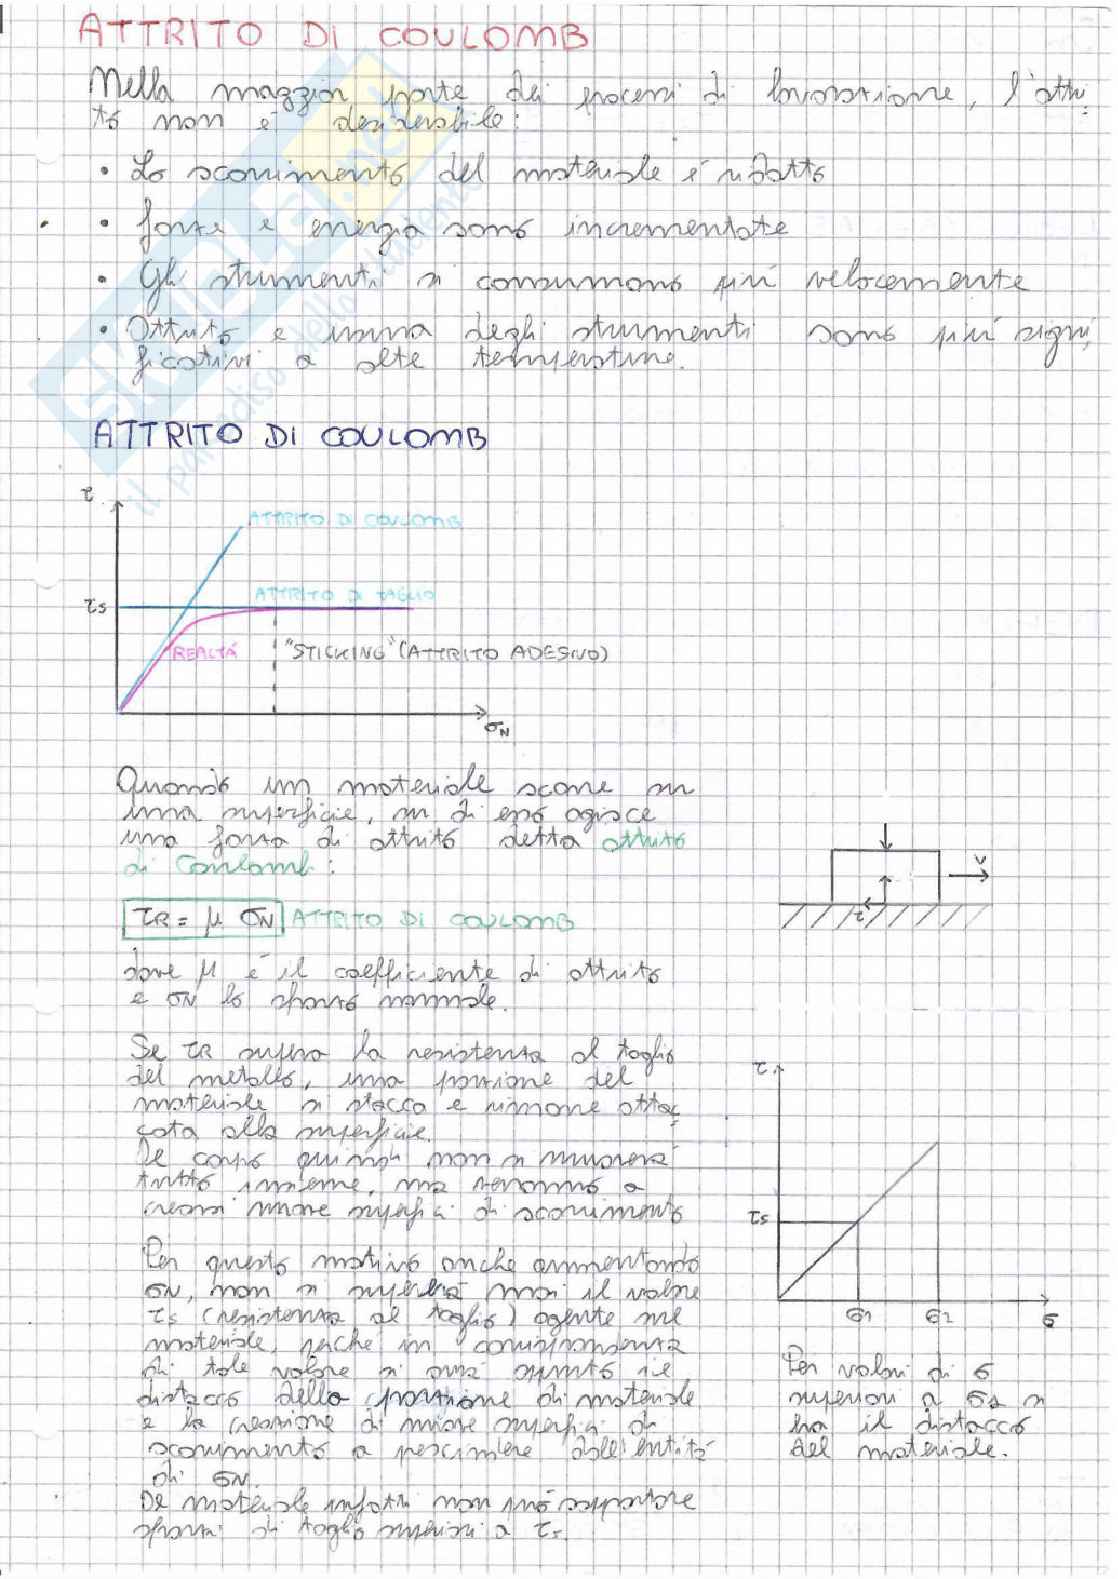 ATTRITO DI COULOMB
Nella maggior parte dei processi di lavorazione, l'attri
to non é desiderabile:
• Lo scorrimento del materiale é ridotto
• forze e energia sono incrementate
• Gli strumenti si consumano piú velocemente
• Attrito e usura degli strumenti sono piú signi
ficativi a alte temperature.
skuola.net
il paradiso dello studente
ATTRITO DI COULOMB
τ
ATTRITO DI COULOMB
τs
ATTRITO DI TAGLIO
REALTÁ
"STICKING" (ATTRITO ADESIVO)
σN
Quando un materiale scorre su
una superficie, su di esso agisce
una forza di attrito detta attrito
di Coulomb:
v
τ
τR = μ σN ATTRITO DI COULOMB
dove μ é il coefficiente di attrito
e σN lo sforzo normale.
Se τR supera la resistenza al taglio
del metallo, una porzione del
materiale si stacca e rimane attac
cata alla superficie.
Il corpo quindi non si muoverá
tutto insieme, ma verranno a
crearsi nuove superfici di scorrimento
τ
τs
σ1
σ2
σ
Per questo motivo anche aumentando
σN, non si supererá mai il valore
τs (resistenza al taglio) agente sul
materiale, perché in corrispondenza
di tale valore si avrá avuto il
distacco della porzione di materiale
e la creazione di nuove superfici di
scorrimento a prescindere dall'entitá
di σN.
Il materiale infatti non può sopportare
sforzi di taglio superiori a τs.
Per valori di σ
superiori a σ2 si
ha il distacco
del materiale.